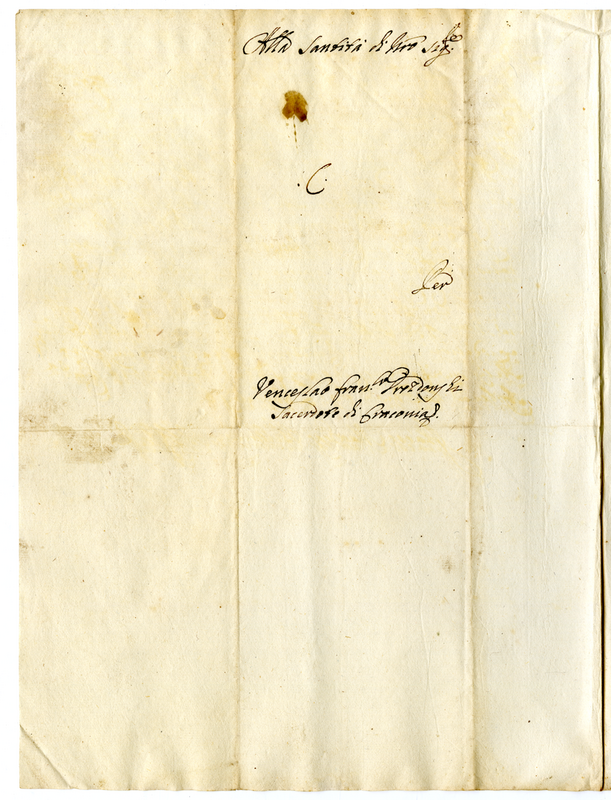 Alla Santità di Nro Sigre
C
Per
Venceslao Franco
Sacerdote di Cracovia